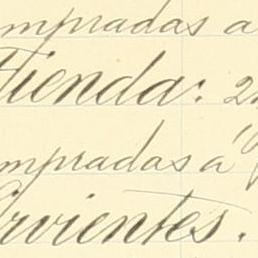 mpradas a
Tienda:
mpradas á "
rvientes.